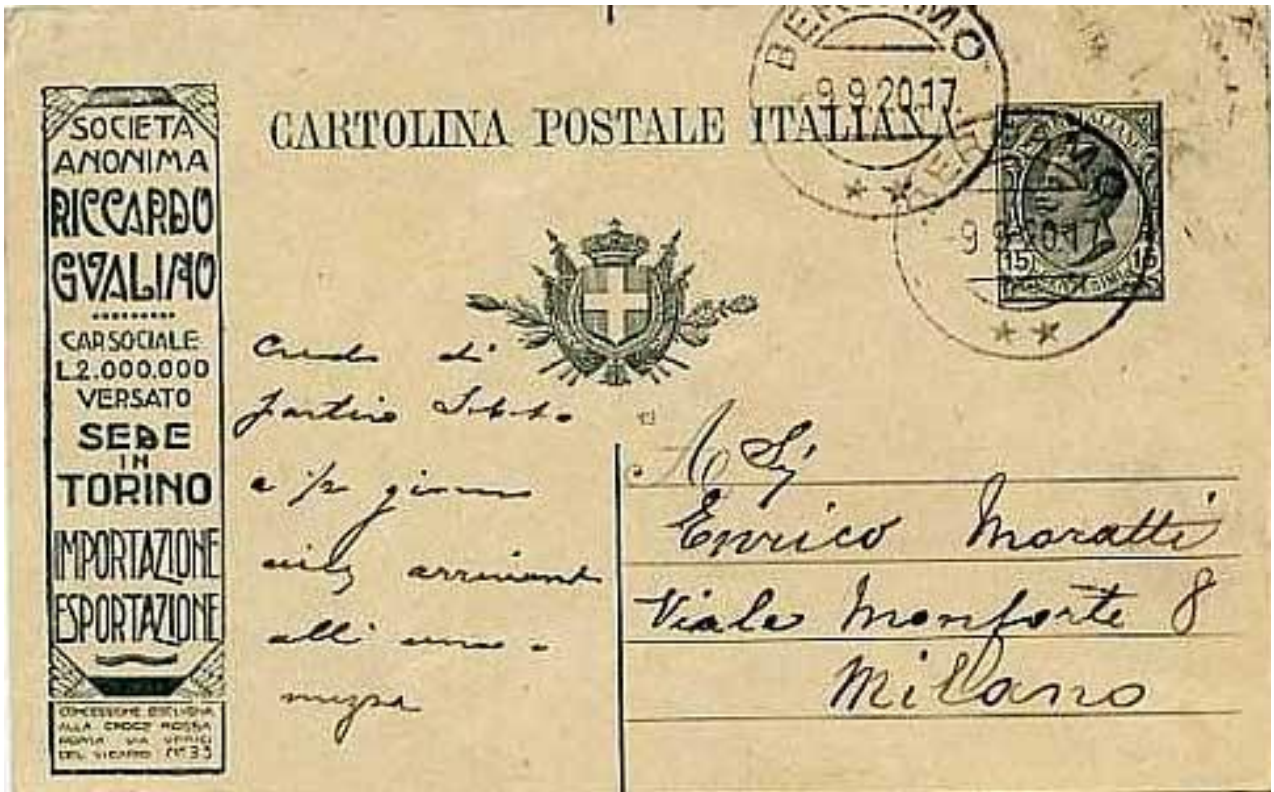 SOCIETA
ANONIMA
RICCARDO
GVALINO
CAP.SOCIALE
L.2.000.000
VERSATO
SEDE
IN
TORINO
IMPORTAZIONE
ESPORTAZIONE
CONCESSIONE ESCLUSIVA
ALLA CROCE ROSSA
ROMA VIA UFFICI
DEL VICARIO Nº 35
CARTOLINA POSTALE ITALIANA
BERGAMO
9.9.20.17
BERGAMO
9 9.20 17
15 15
di
partire
e 1/2 giorno
Enrico Moratti
Viale Monforte 8
Milano